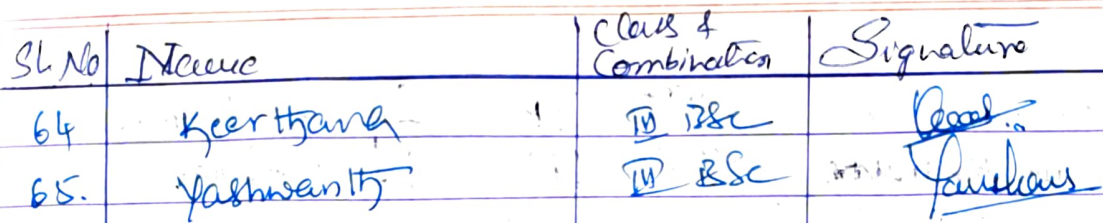 Sl. No Name Class & Combination Signature
64 Keerthana III BSc
65. Yashwanth III BSc